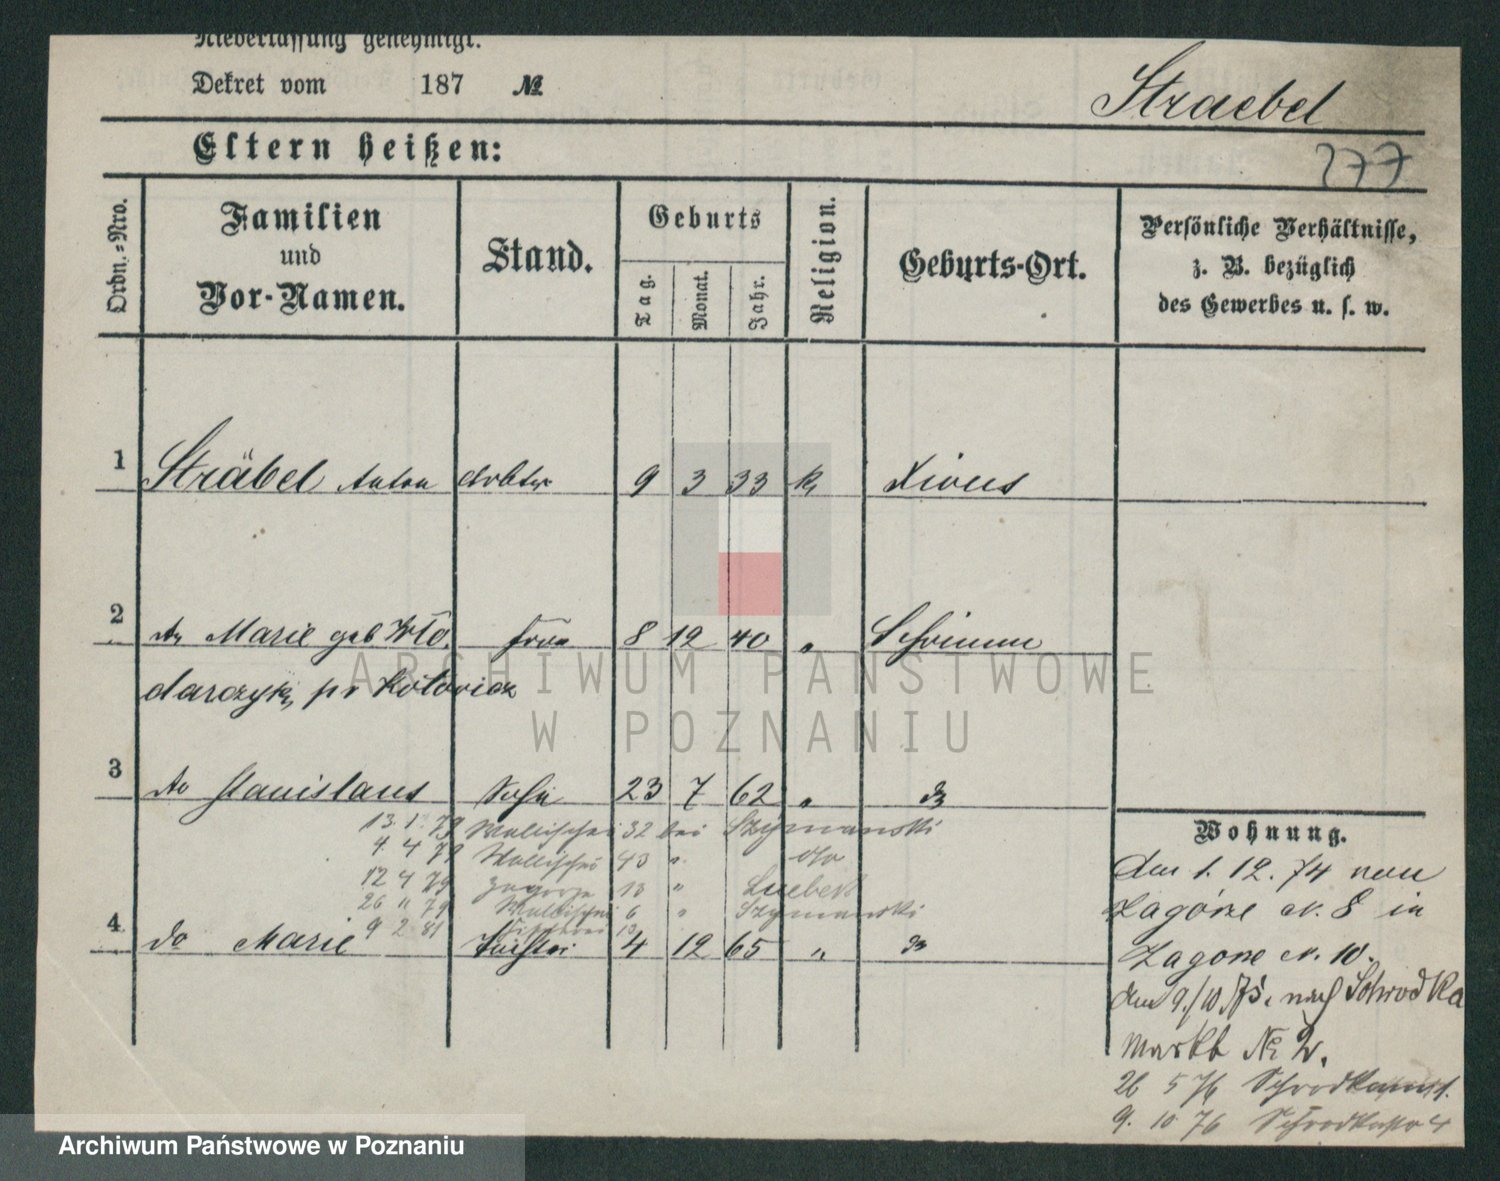 Niederlassung genehmigt.
Dekret vom 187 №
Straebel
Eltern heißen:
277
Ordn.-Nro.
Familien
und
Vor-Namen.
Stand.
Geburts
Tag.
Monat.
Jahr.
Religion.
Geburts-Ort.
Persönliche Verhältnisse,
z. B. bezüglich
des Gewerbes u. s. w.
1 Sträbel Anton 9 3 33 k Xions
2 Marie geb Wło. Frau 8 12 40 " Schrimm
darczyk,
3 do Stanislaus Sohn 23 7 62 " do
13 1 79 Wallischei 32 bei Szymanski
4 4 79 Wallischei 43 " dto
12 4 79 Zagorze 13 "
26 " 79 Wallischei 6 " Szymanski
9 2 81
4 do Marie 4 12 65 " do
Wohnung.
den 1. 12. 74 von
Zagórze N. 8 in
Zagorze N. 10.
den 9./10. 75. nach Schrodka
Markt № 2.
26 5 76 Schrodkamrkt.
9. 10 76 4
ARCHIWUM PAŃSTWOWE
W POZNANIU
Archiwum Państwowe w Poznaniu